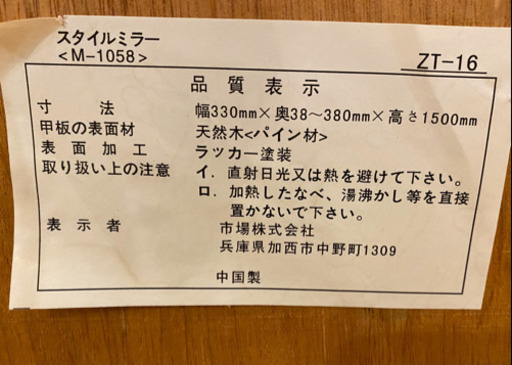 スタイルミラー
<M-1058>
ZT-16
品質表示
寸法 幅330mm×奥38~380mm×高さ1500mm
甲板の表面材 天然木<パイン材>
表面加工 ラッカー塗装
取り扱い上の注意 イ. 直射日光又は熱を避けて下さい。
ロ. 加熱したなべ、湯沸かし等を直接
置かないで下さい。
表示者 市場株式会社
兵庫県加西市中野町1309
中国製